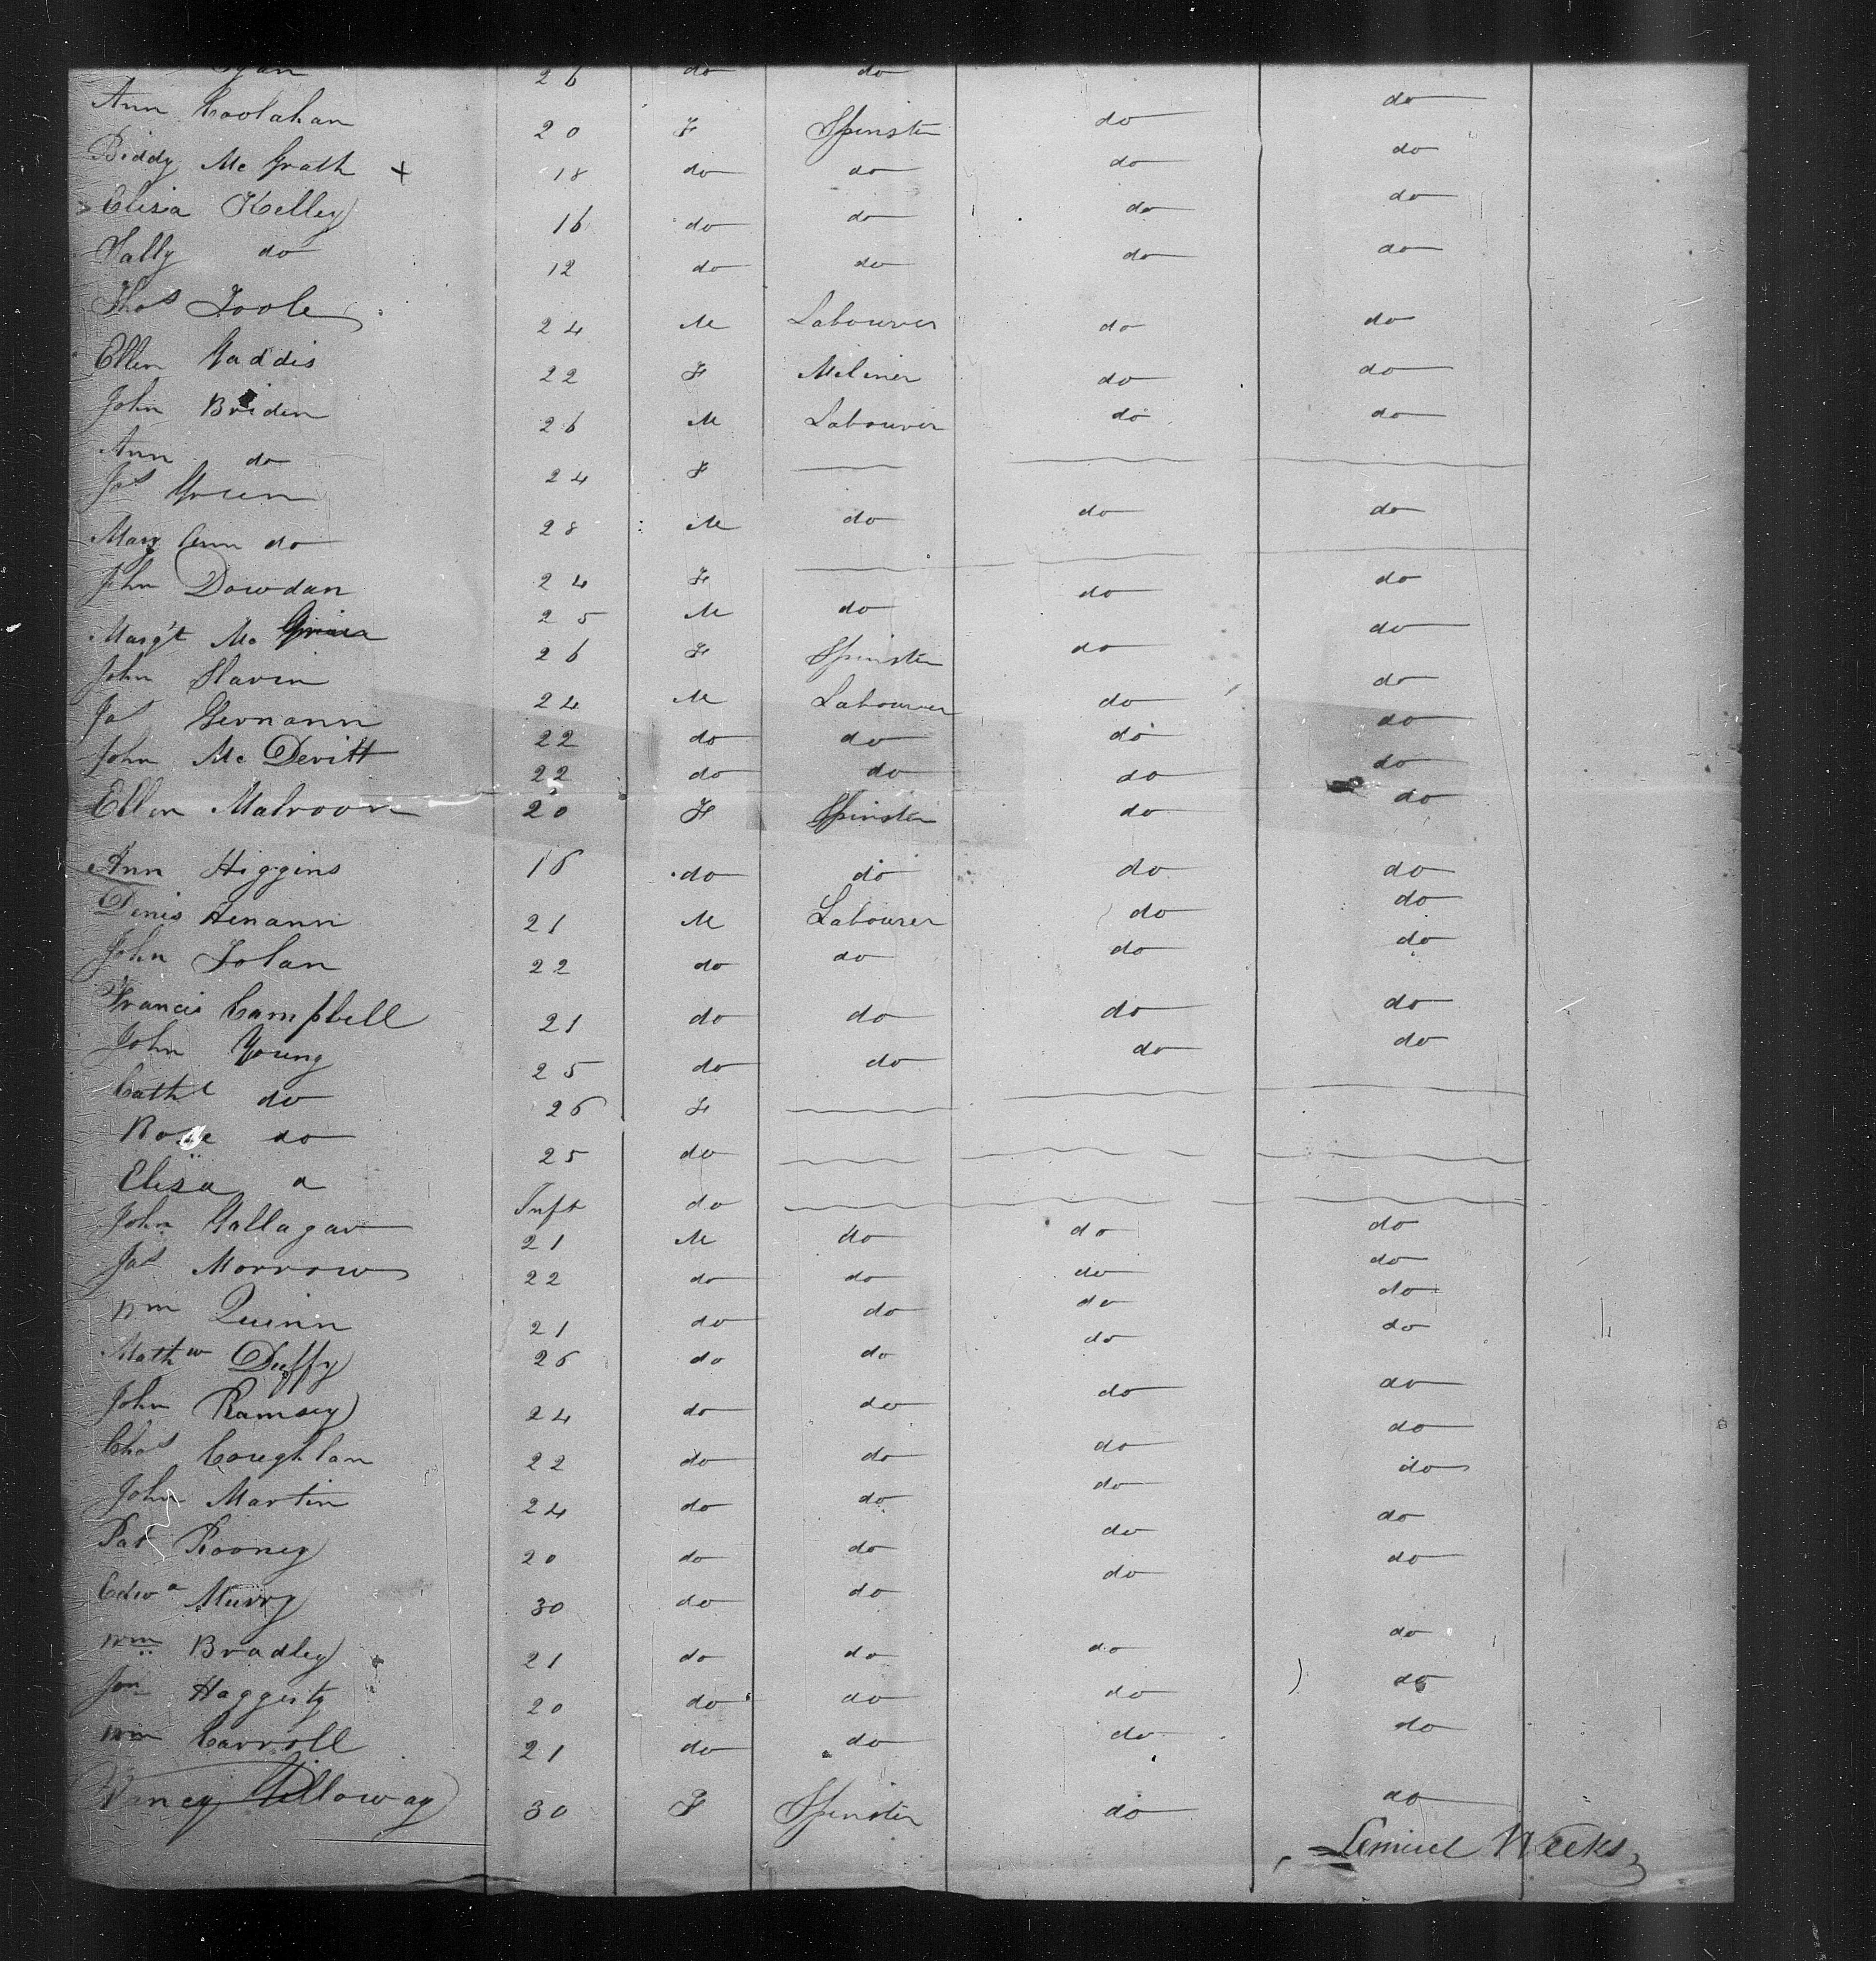 26 do do
Ann Coolahan 20 F Spinster do do
Biddy Mc Grath x 18 do do do do
Elisia Kelley 16 do do do do
Sally do 12 do do do do
Thos Toole 24 M Labourer do do
Ellen Gaddis 22 F Meliner do do
John Briden 26 M Labourer do do
Ann do 24 F
Jas Green 28 M do do do
Mary Ann do 24 F
John Dowdan 25 M do do do
Marg't Mc 26 F Spinster do do
John Slavin 24 M Labourer do do
Jas Gernann 22 do do do do
John Mc Devitt 22 do do do do
Ellen Malroon 20 F Spinster do do
Ann Higgins 16 do do do do
Denis Henann 21 M Labourer do do
John Folan 22 do do do do
Francis Campbell 21 do do do do
John Young 25 do do do do
Cathe do 26 F
Rose do 25 do
Elisa Inft do
John Gallagar 21 M do do do
Jas Morrow 22 do do do do
Wm Quinn 21 do do do do
Mathw Duffy 26 do do do do
John Ramsey 24 do do do do
Chas Coughlan 22 do do do do
John Martin 24 do do do do
Pat Rooney 20 do do do do
Edwd Murry 30 do do do do
Wm Bradley 21 do do do do
Jon Haggerty 20 do do do do
Wm Carroll 21 do do do do
Nancy Gilloway 30 F Spinster do do
Lemuel Weeks